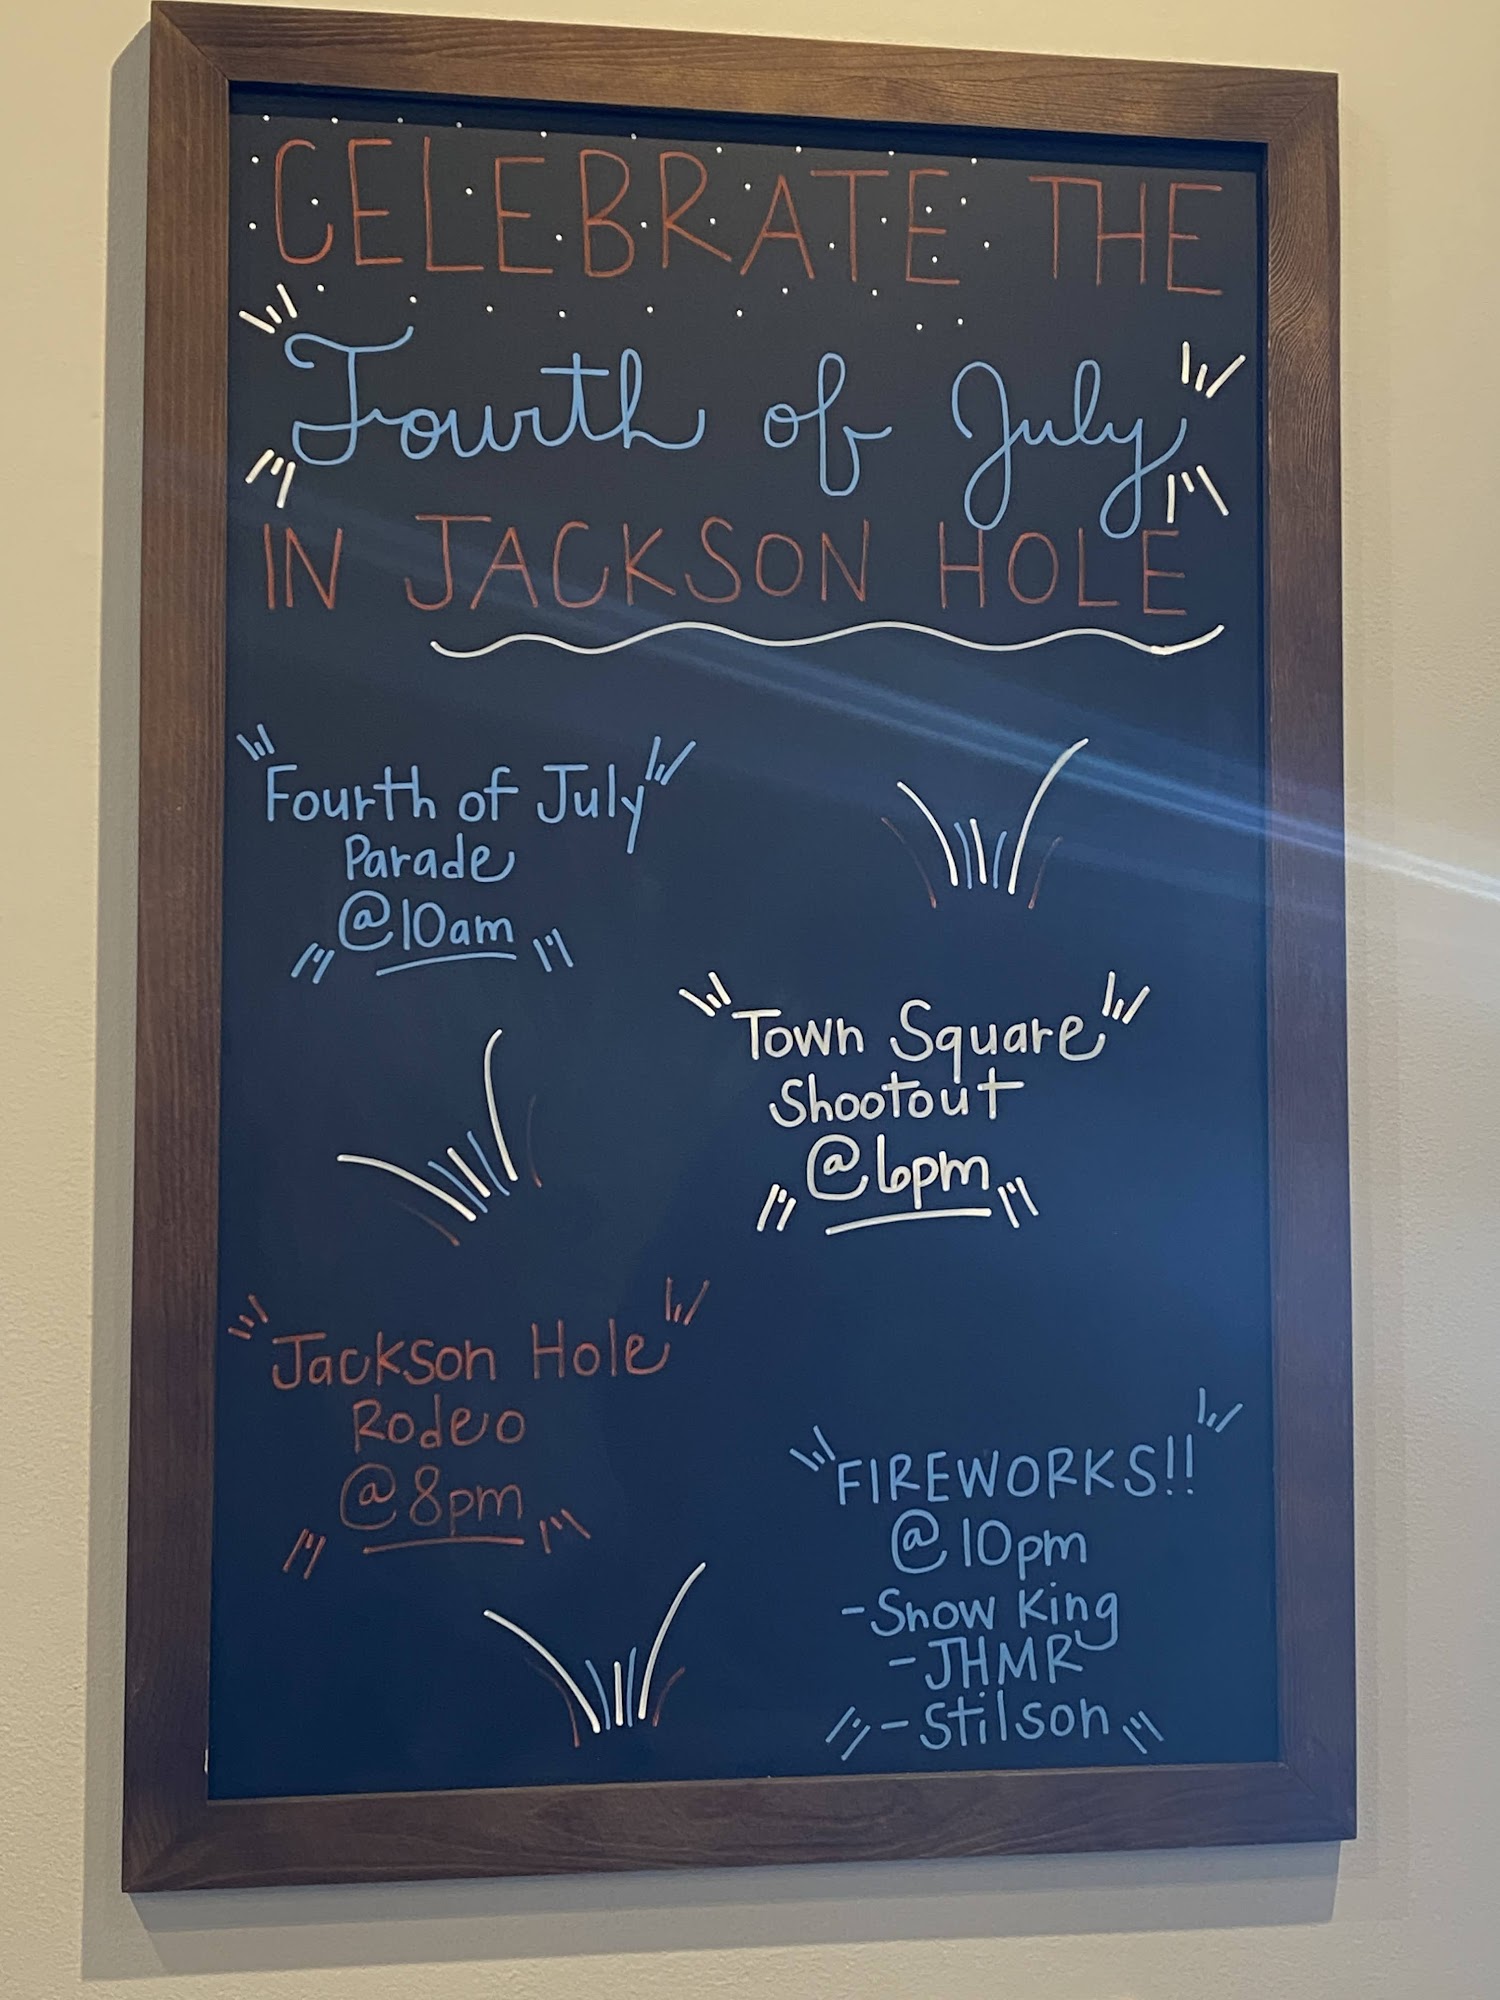 CELEBRATE THE
Fourth of July
IN JACKSON HOLE
Fourth of July
Parade
@10am
Town Square
Shootout
@6pm
Jackson Hole
Rodeo
@8pm
FIREWORKS!!
@10pm
-Snow King
-JHMR
-Stilson